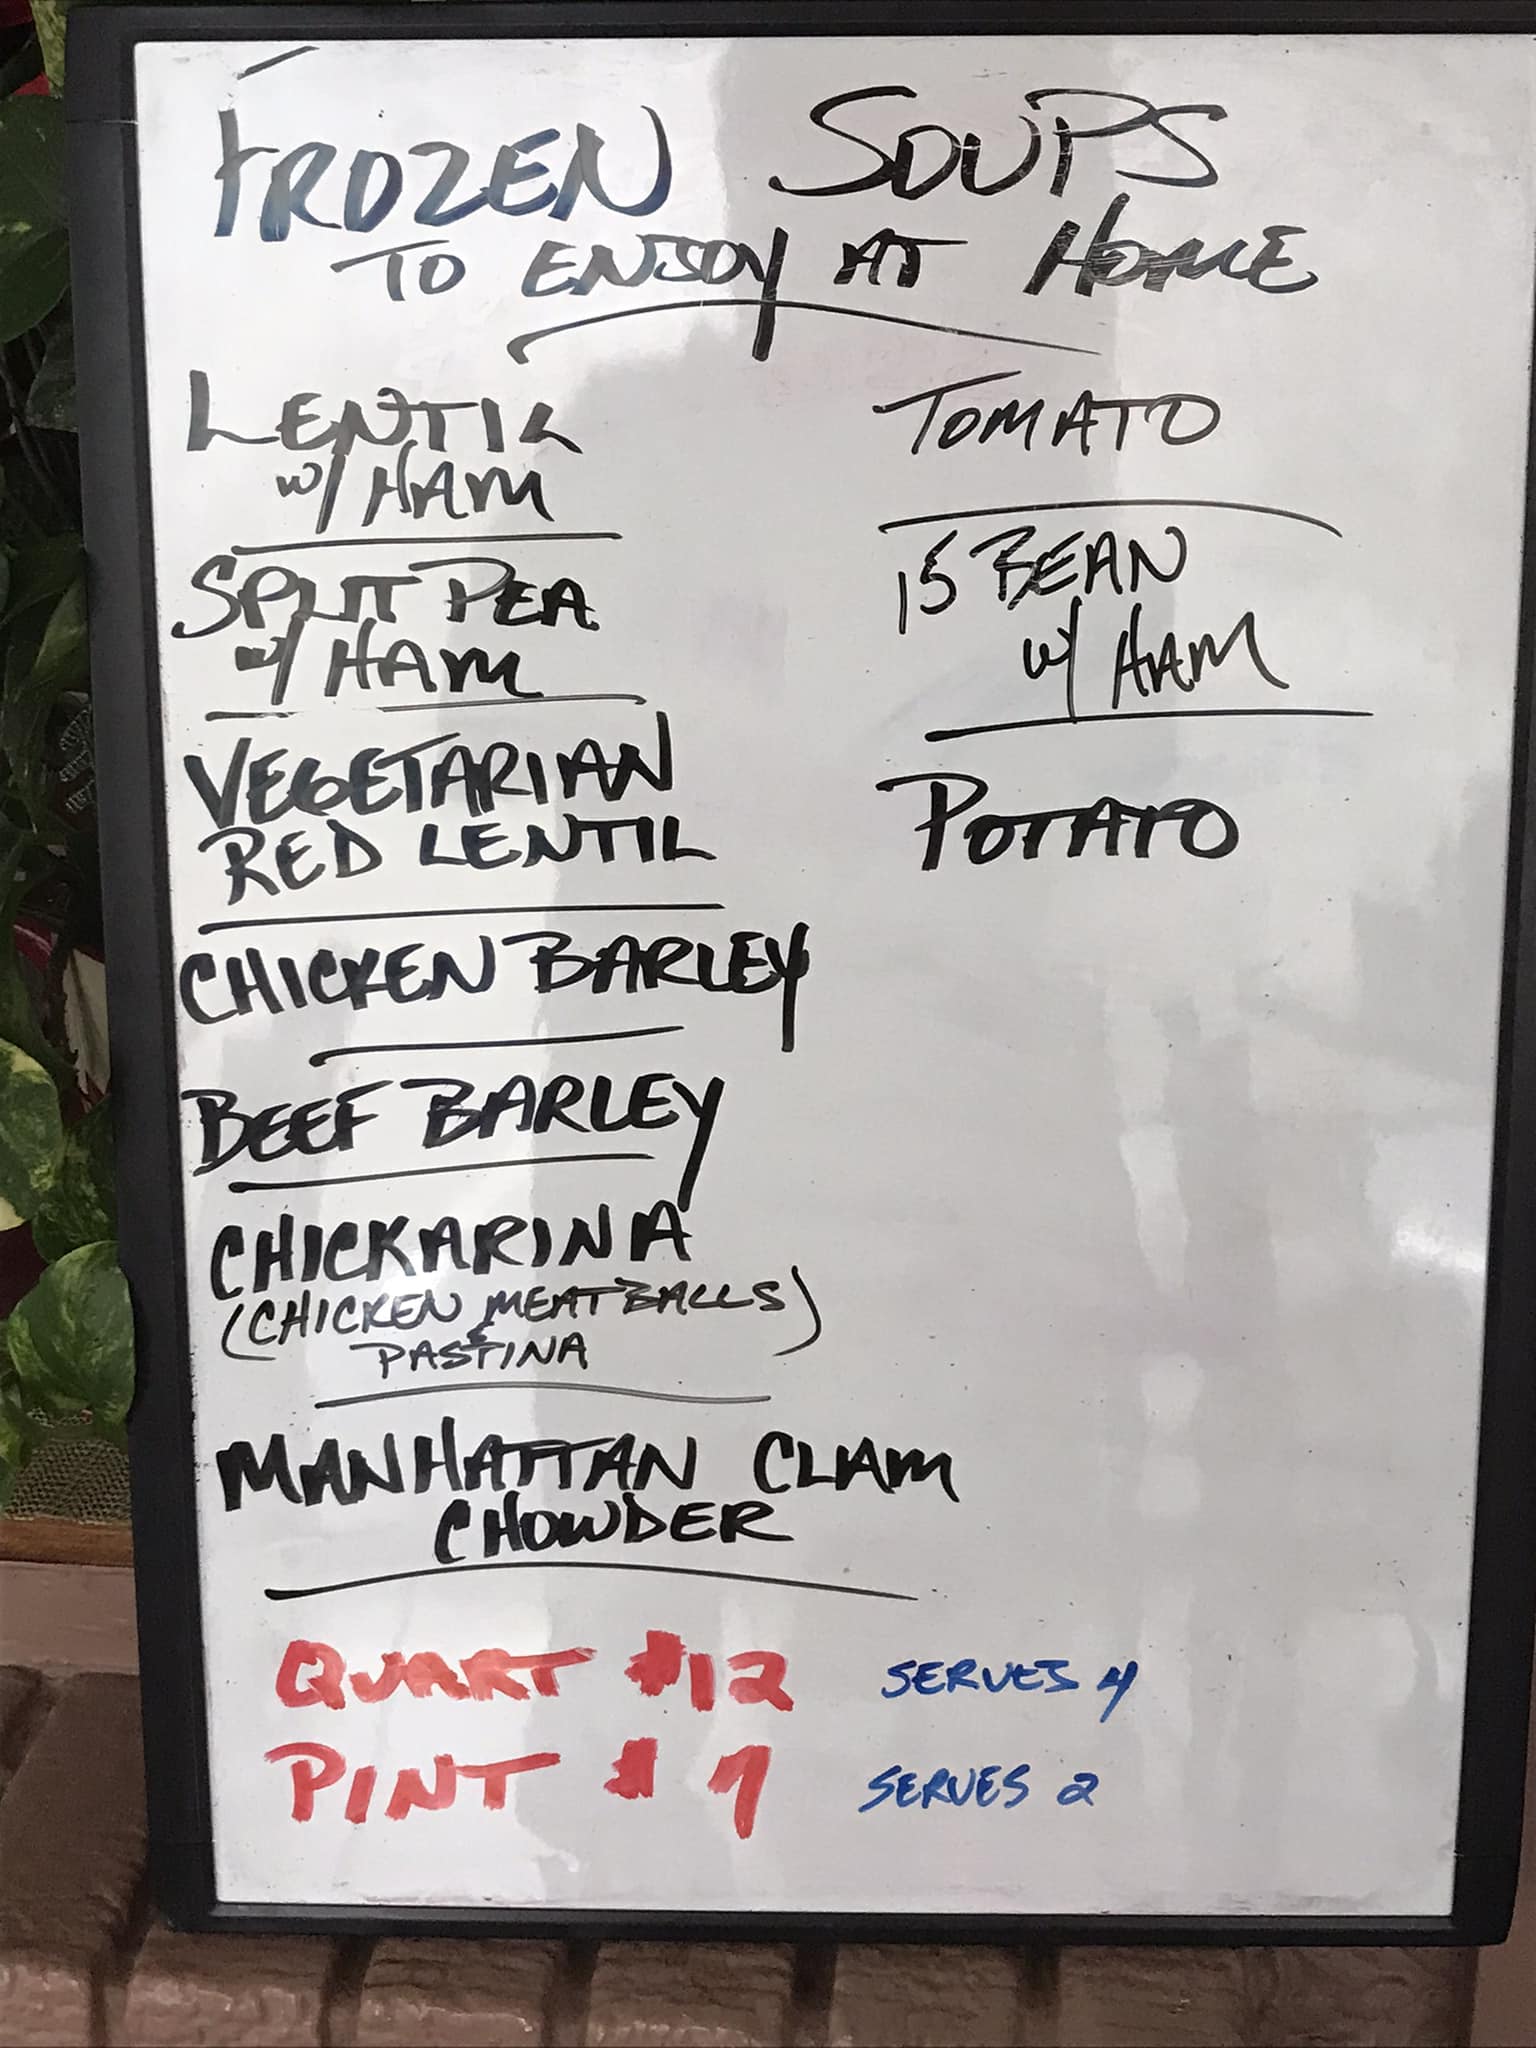 FROZEN SOUPS
TO ENJOY AT HOME
LENTIL
w/ HAM
SPLIT PEA
w/ HAM
VEGETARIAN
RED LENTIL
CHICKEN BARLEY
BEEF BARLEY
CHICKARINA
(CHICKEN MEATBALLS)
&
PASTINA
MANHATTAN CLAM
CHOWDER
TOMATO
15 BEAN
w/ HAM
POTATO
QUART $12 SERVES 4
PINT $7 SERVES 2